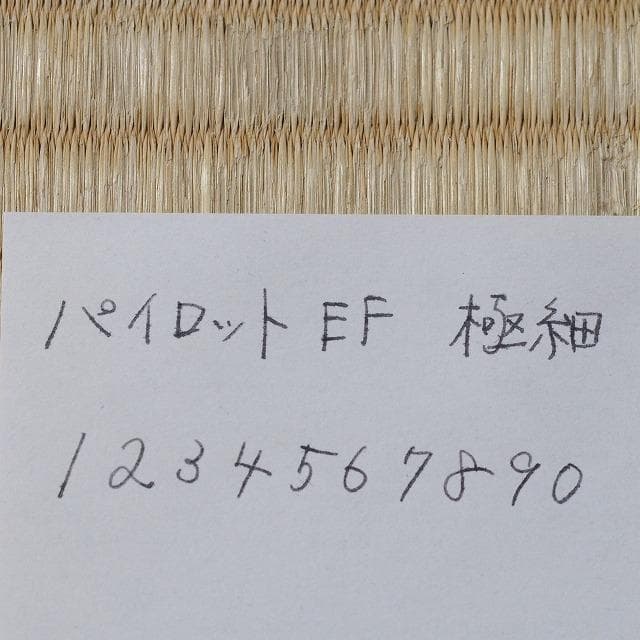 パイロット EF 極細
1234567890